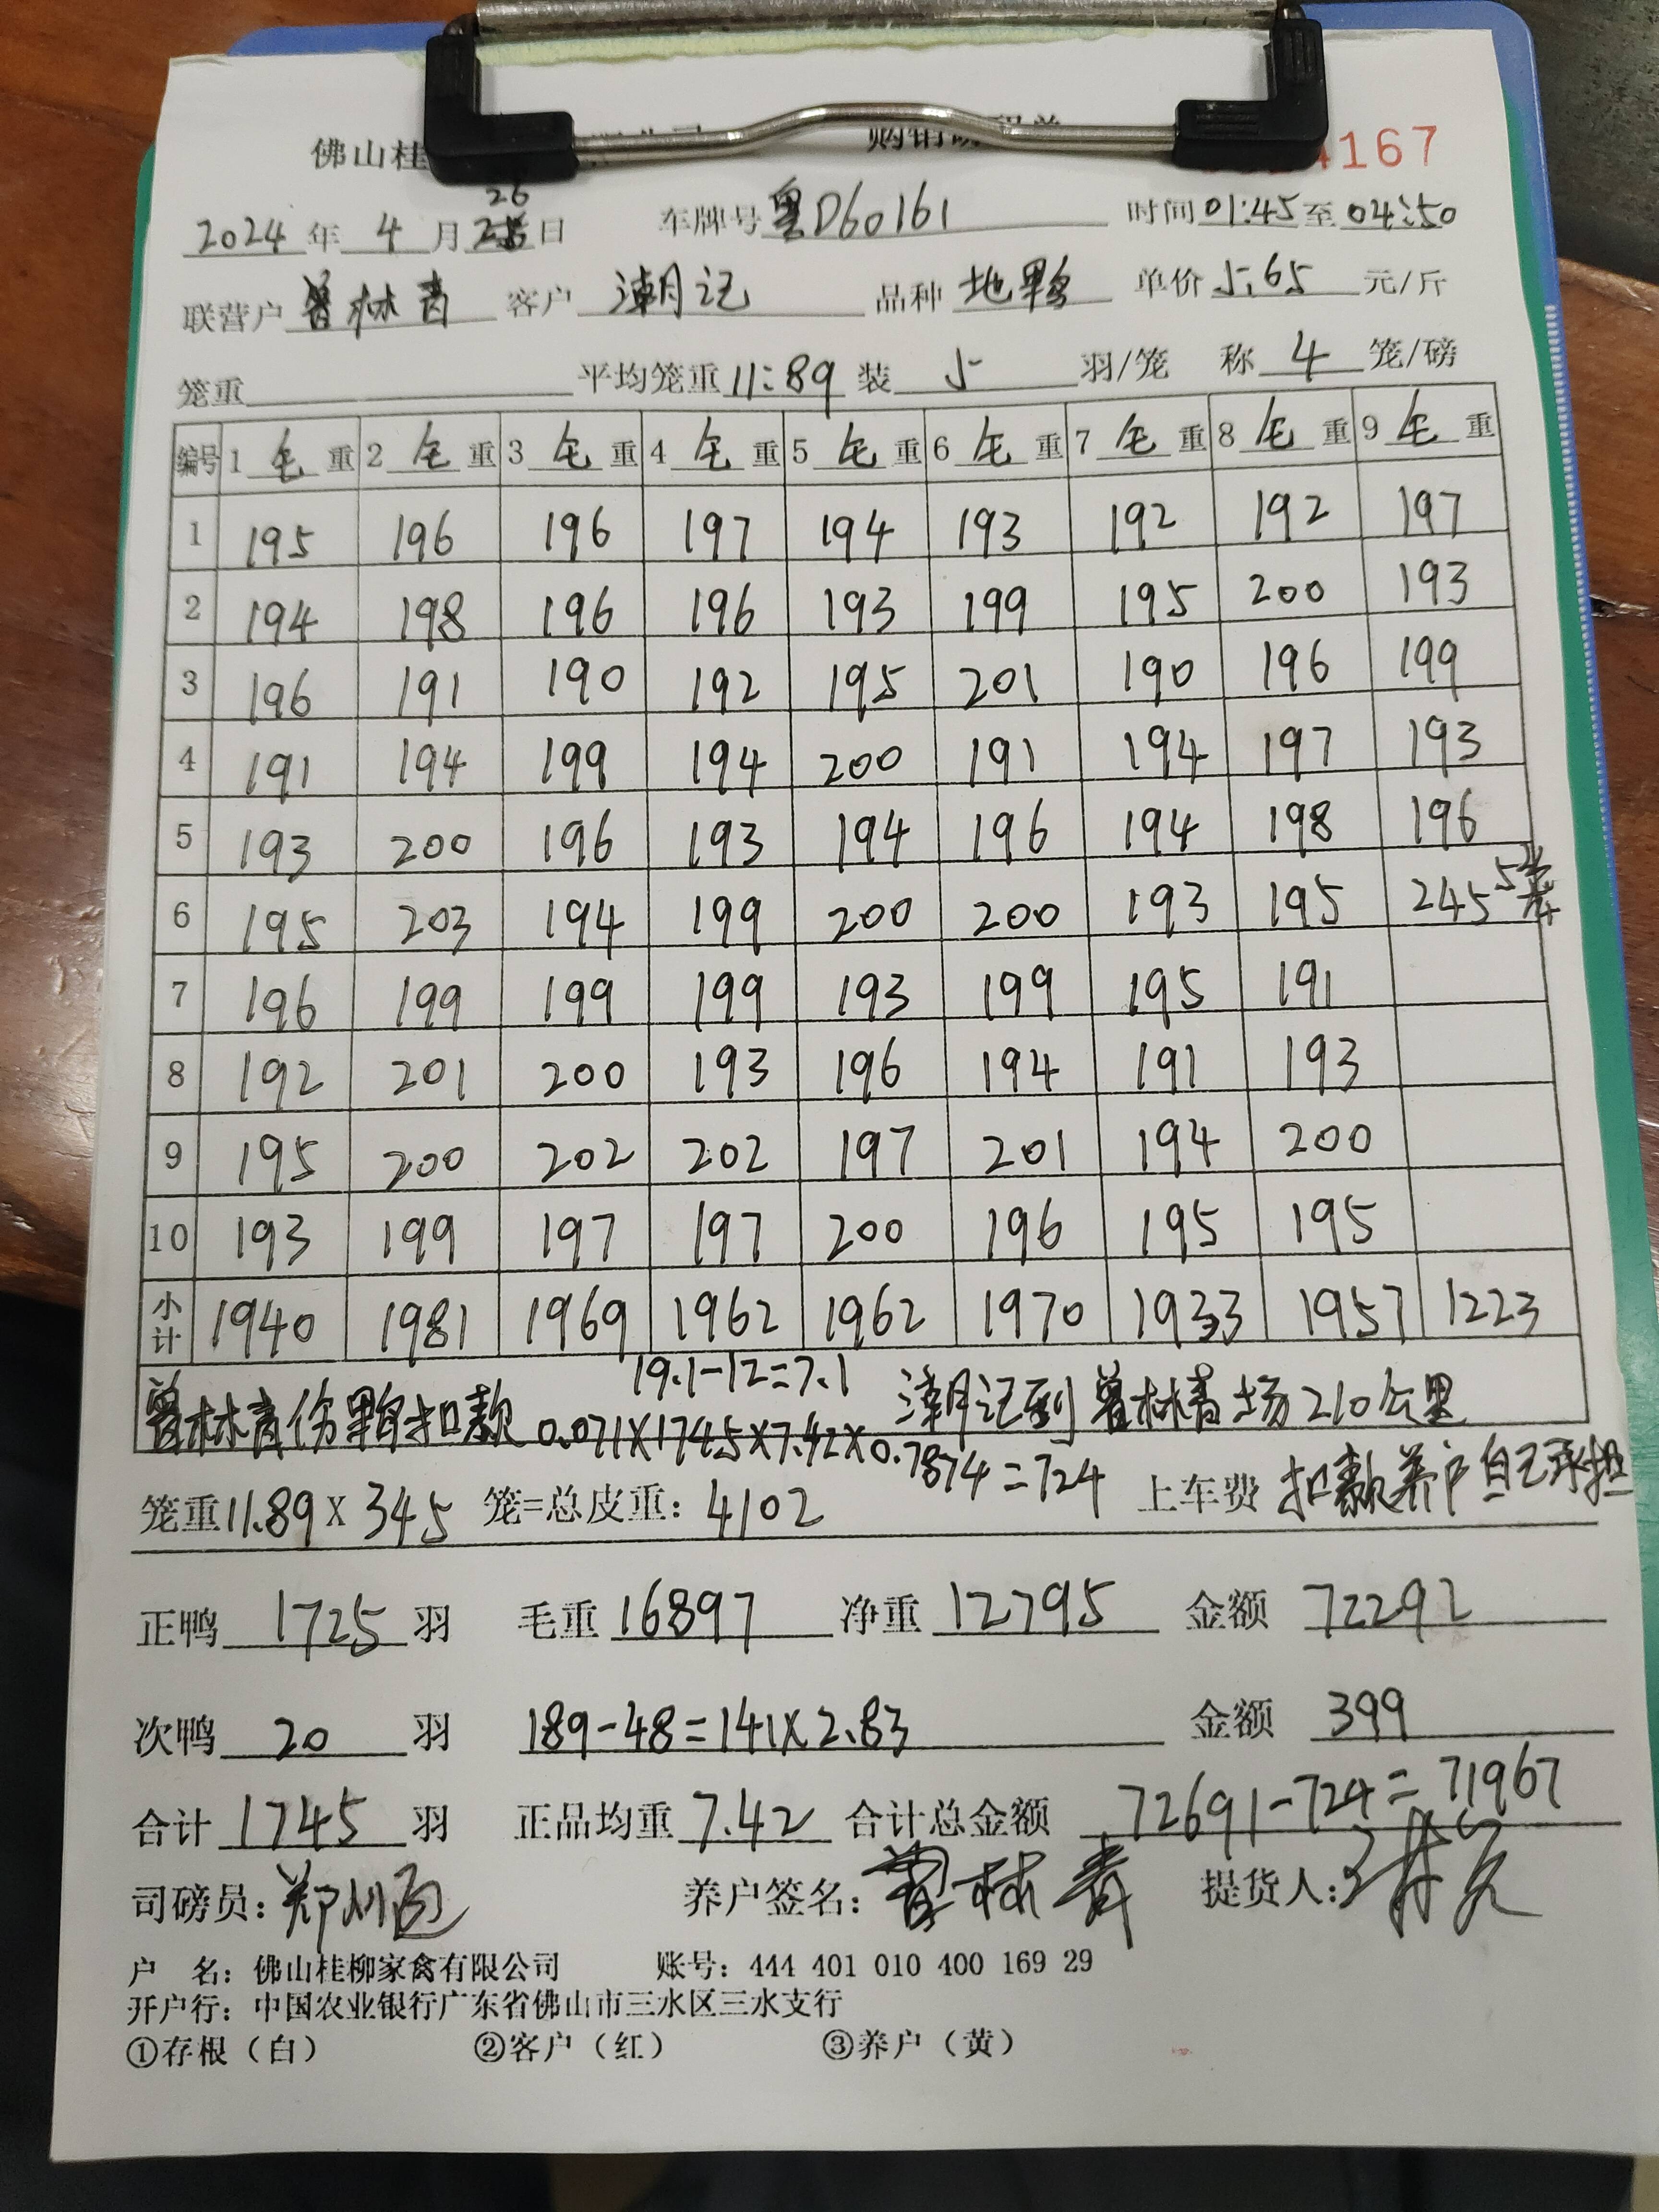 佛山桂 购销 4167
26
2024年4月日 车牌号粤D60161 时间01:45至04:50
联营户曾林青 客户潮记 品种地鸭 单价5.65元/斤
笼重 平均笼重11:89装5羽/笼 称4笼/磅
编号 1毛重 2毛重 3毛重 4毛重 5毛重 6毛重 7毛重 8毛重 9毛重
1 195 196 196 197 194 193 192 192 197
2 194 198 196 196 193 199 195 200 193
3 196 191 190 192 195 201 190 196 199
4 191 194 199 194 200 191 194 197 193
5 193 200 196 193 194 196 194 198 196
6 195 203 194 199 200 200 193 195 245 5笼
7 196 199 199 199 193 199 195 191
8 192 201 200 193 196 194 191 193
9 195 200 202 202 197 201 194 200
10 193 199 197 197 200 196 195 195
小计 1940 1981 1969 1962 1962 1970 1933 1957 1223
19.1-12=7.1
曾林青伤鸭扣款 0.071X1745X7.42X0.7874=724 潮记到曾林青场210公里
笼重11.89X345笼=总皮重:4102 上车费 扣款养户自己承担
正鸭1725羽 毛重16897 净重12795 金额72292
次鸭20羽 189-48=141X2.83 金额399
合计1745羽 正品均重7.42 合计总金额72691-724=71967
司磅员: 养户签名:曾林青 提货人:
户 名:佛山桂柳家禽有限公司 账号:444 401 010 400 169 29
开户行:中国农业银行广东省佛山市三水区三水支行
①存根(白) ②客户(红) ③养户(黄)